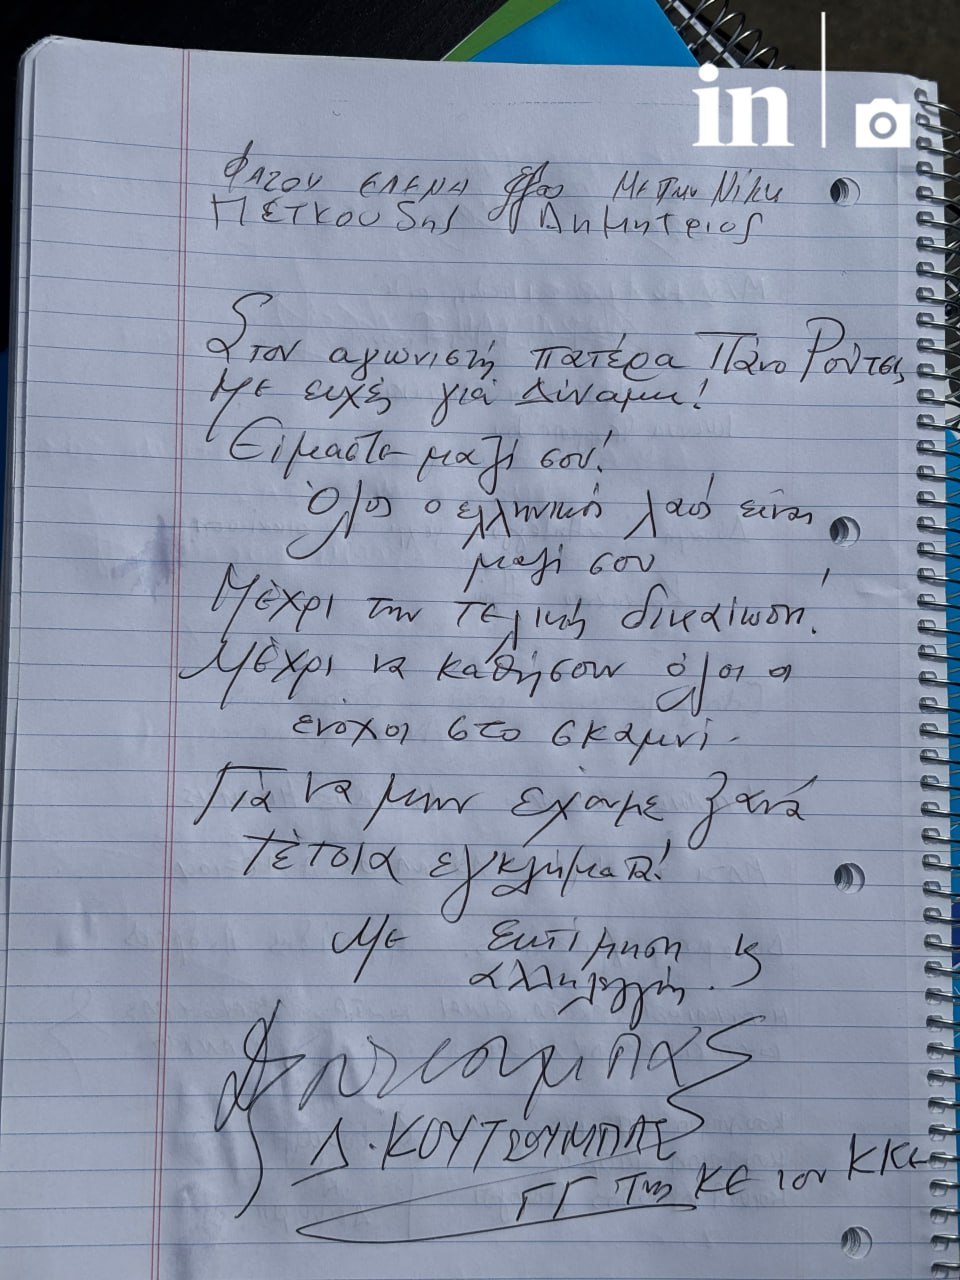 in
ΦΑΖΟΥ ΕΛΕΝΗ Με την Νίκη
ΠΕΤΚΟΥδης Δημητριος
Στον αγωνιστή πατέρα Πάνο Ρούτσι
Με ευχές για Δύναμη!
Είμαστε μαζί σου!
Όλος ο ελληνικός λαός είναι
μαζί σου
Μέχρι την τελική δικαίωση!
Μέχρι να καθήσουν όλοι οι
ενόχοι στο σκαμνί.
Για να μην έχουμε ξανά
τέτοια εγκλήματα!
Με εκτίμηση ϗ
αλληλεγγύη.
Δ. ΚΟΥΤΣΟΥΜΠΑΣ
ΓΓ της ΚΕ του ΚΚΕ